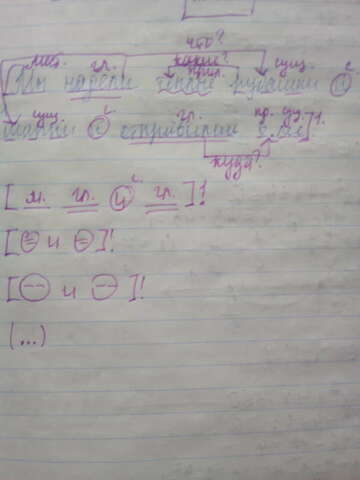 что?
мест. гл. какие? прил. сущ. с
Мы надели тёплые рубашки и
сущ. с гл. пр. сущ.
и отправили в лес]1.
куда?
[ м. гл. и с гл. ]!
[ и ]!
[ и ]!
(...)